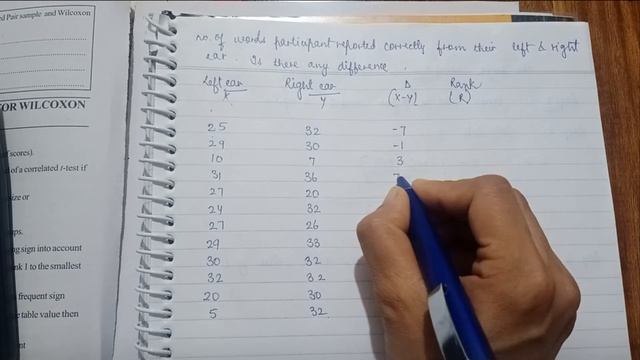 ed Pair sample and Wilcoxon
OR WILCOXON
f scores).
d of a correlated t-test if
size or
ups.
ng sign into account
nk 1 to the smallest
s frequent sign
e table value then
no. of words participant reported correctly from their left & right
ear. Is there any difference.
Left ear Right ear D Rank
X Y (X-Y) (R)
25 32 -7
29 30 -1
10 7 3
31 36
27 20
24 32
27 26
29 33
30 32
32 32
20 30
5 32